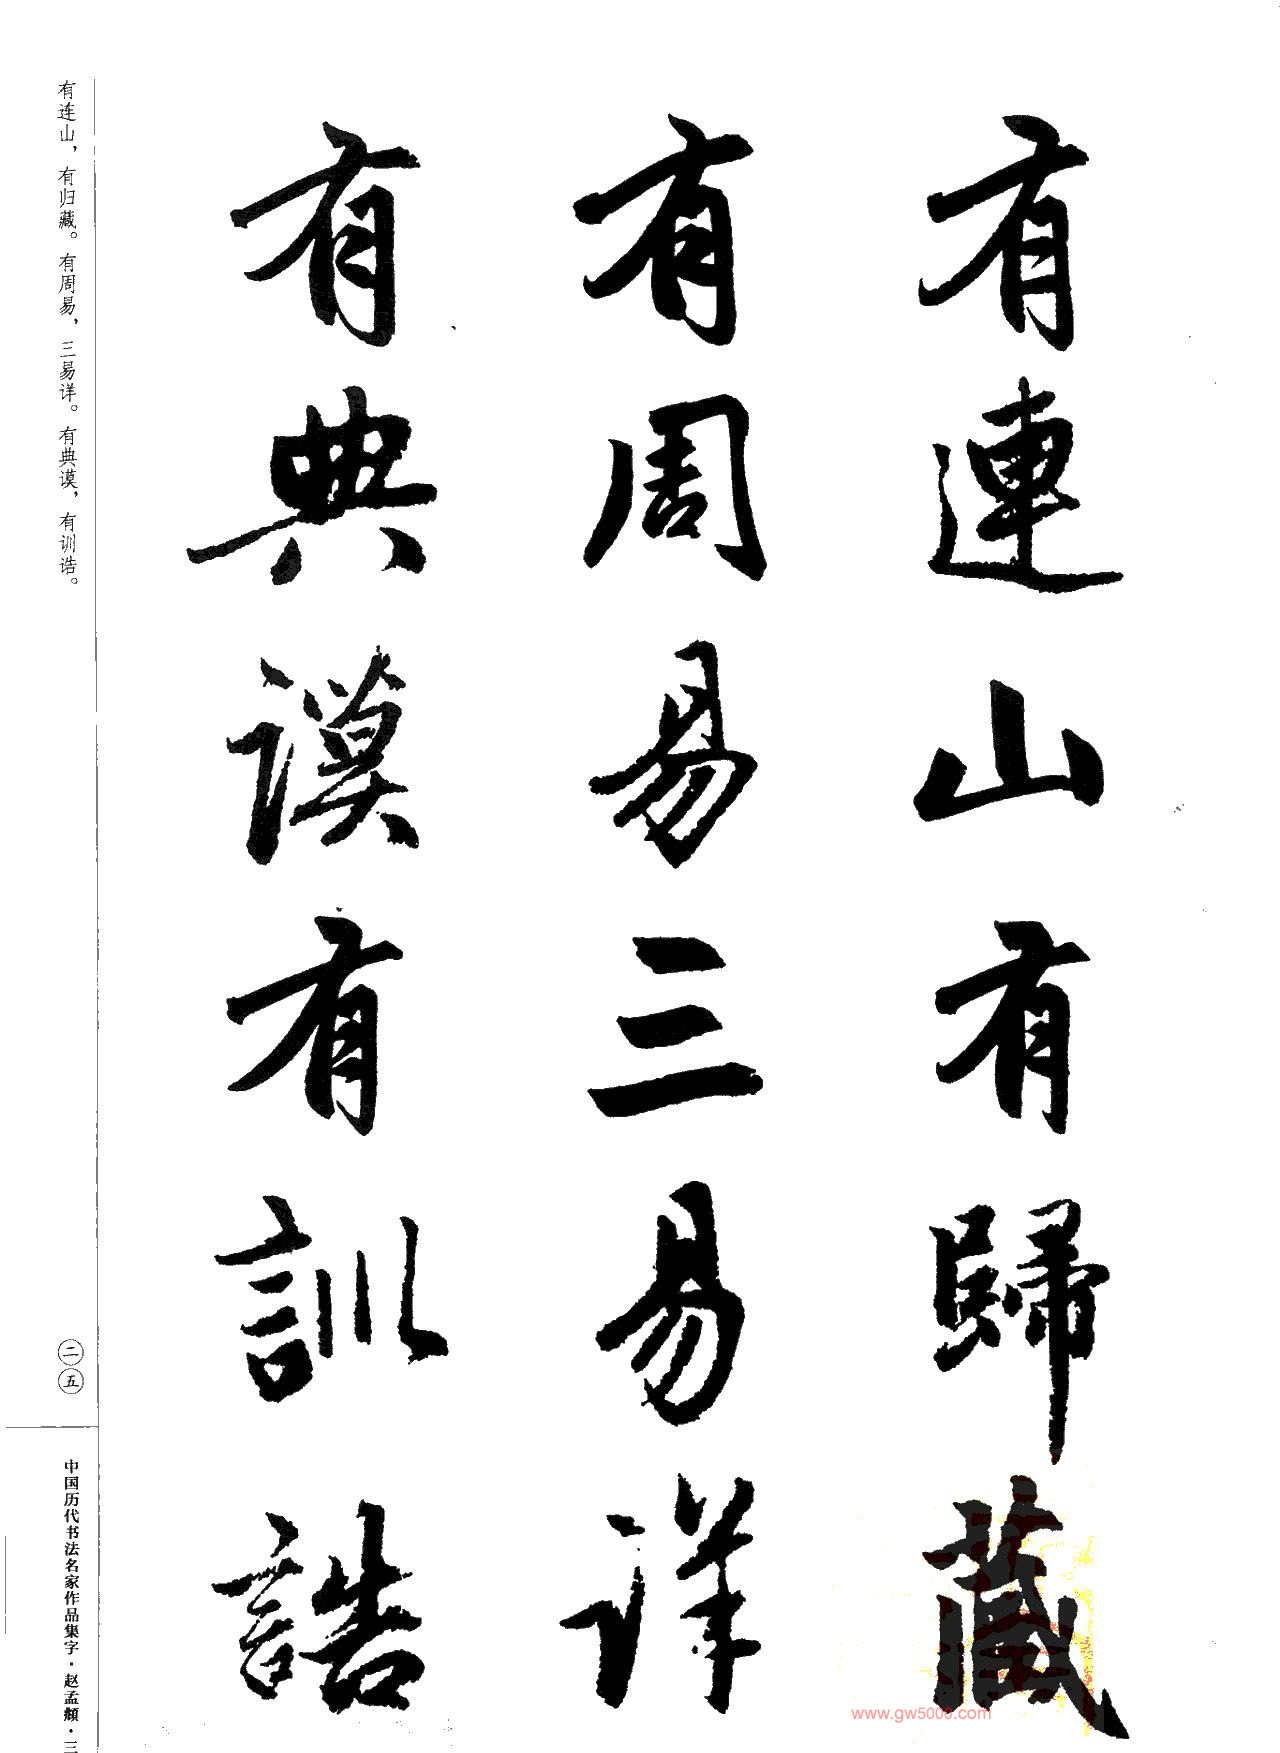 有連山有歸藏
有周易三易详
有典谟有訓誥
有连山，有归藏。有周易，三易详。有典谟，有训诰。
二五
中国历代书法名家作品集字·赵孟頫·三
www.gw5000.com